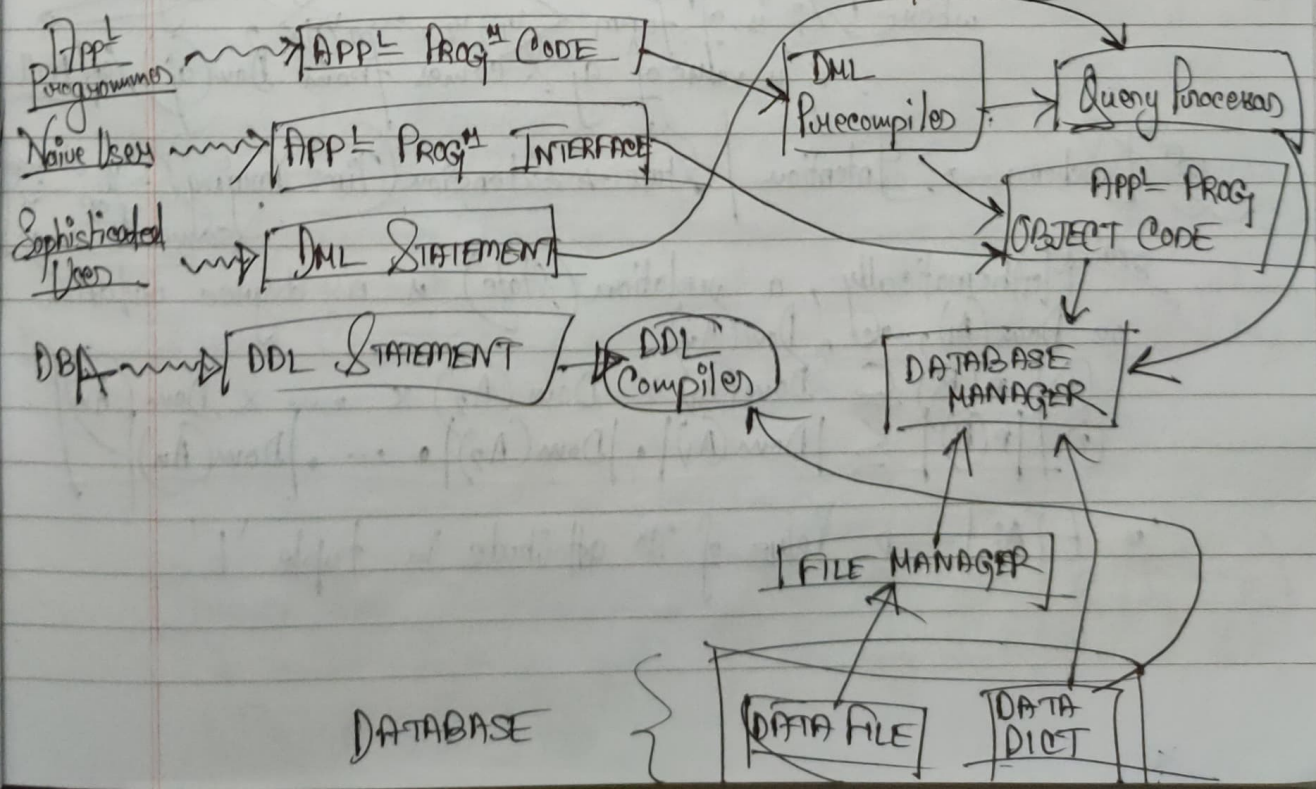 APPL
Programmer
APPL PROGM CODE
DML
Precompiler
Query Processor
Naive Users
APPL PROGM INTERFACE
APPL PROG
OBJECT CODE
Sophisticated
User
DML STATEMENT
DBA
DDL STATEMENT
DDL
Compiler
DATABASE
MANAGER
FILE MANAGER
DATABASE
DATA FILE
DATA
DICT